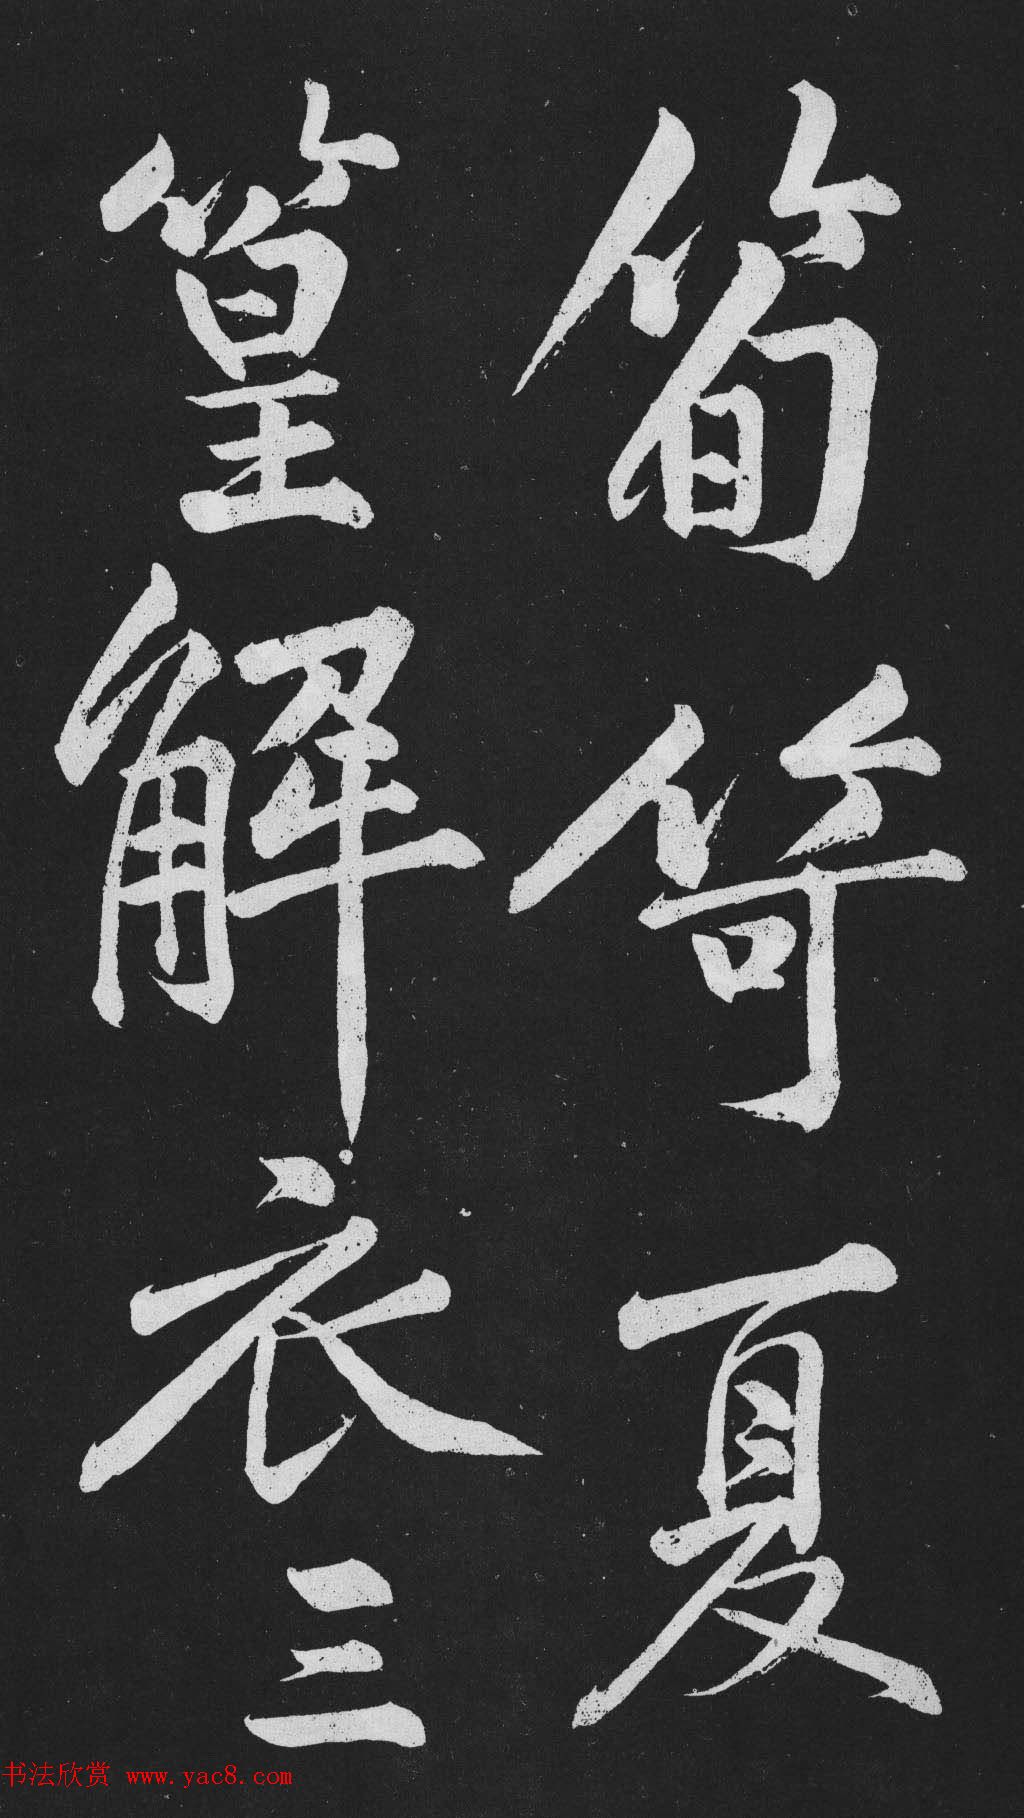 筍笴夏
篁解衣三
书法欣赏 www.yac8.com